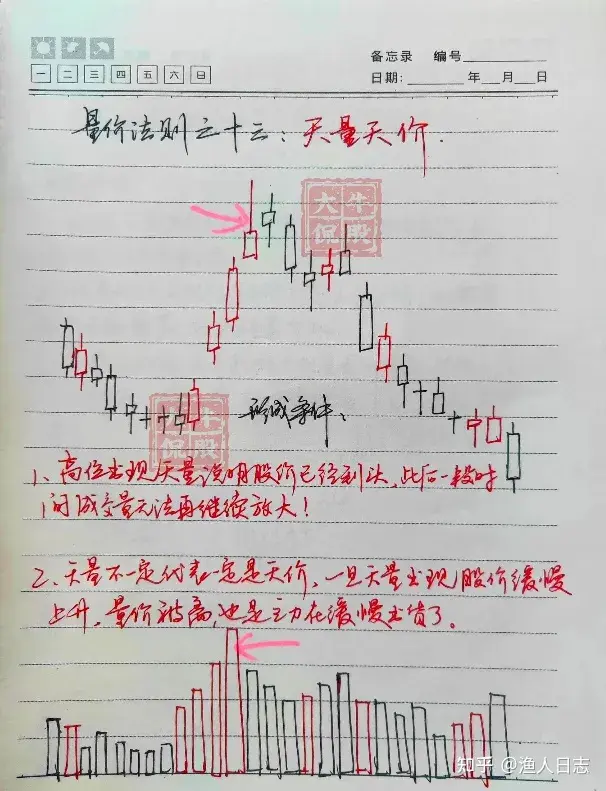 备忘录 编号
一 二 三 四 五 六 日
日期: 年 月 日
量价法则之十三：天量天价.
大牛
侃股
形成条件、
大牛
侃股
1、高位出现天量说明股价已经到头，此后一段时
间成交量无法再继续放大！
2、天量不一定代表一定是天价，一旦天量出现股价缓慢
上升，量价背离，也是主力在缓慢出货了。
知乎 @渔人日志